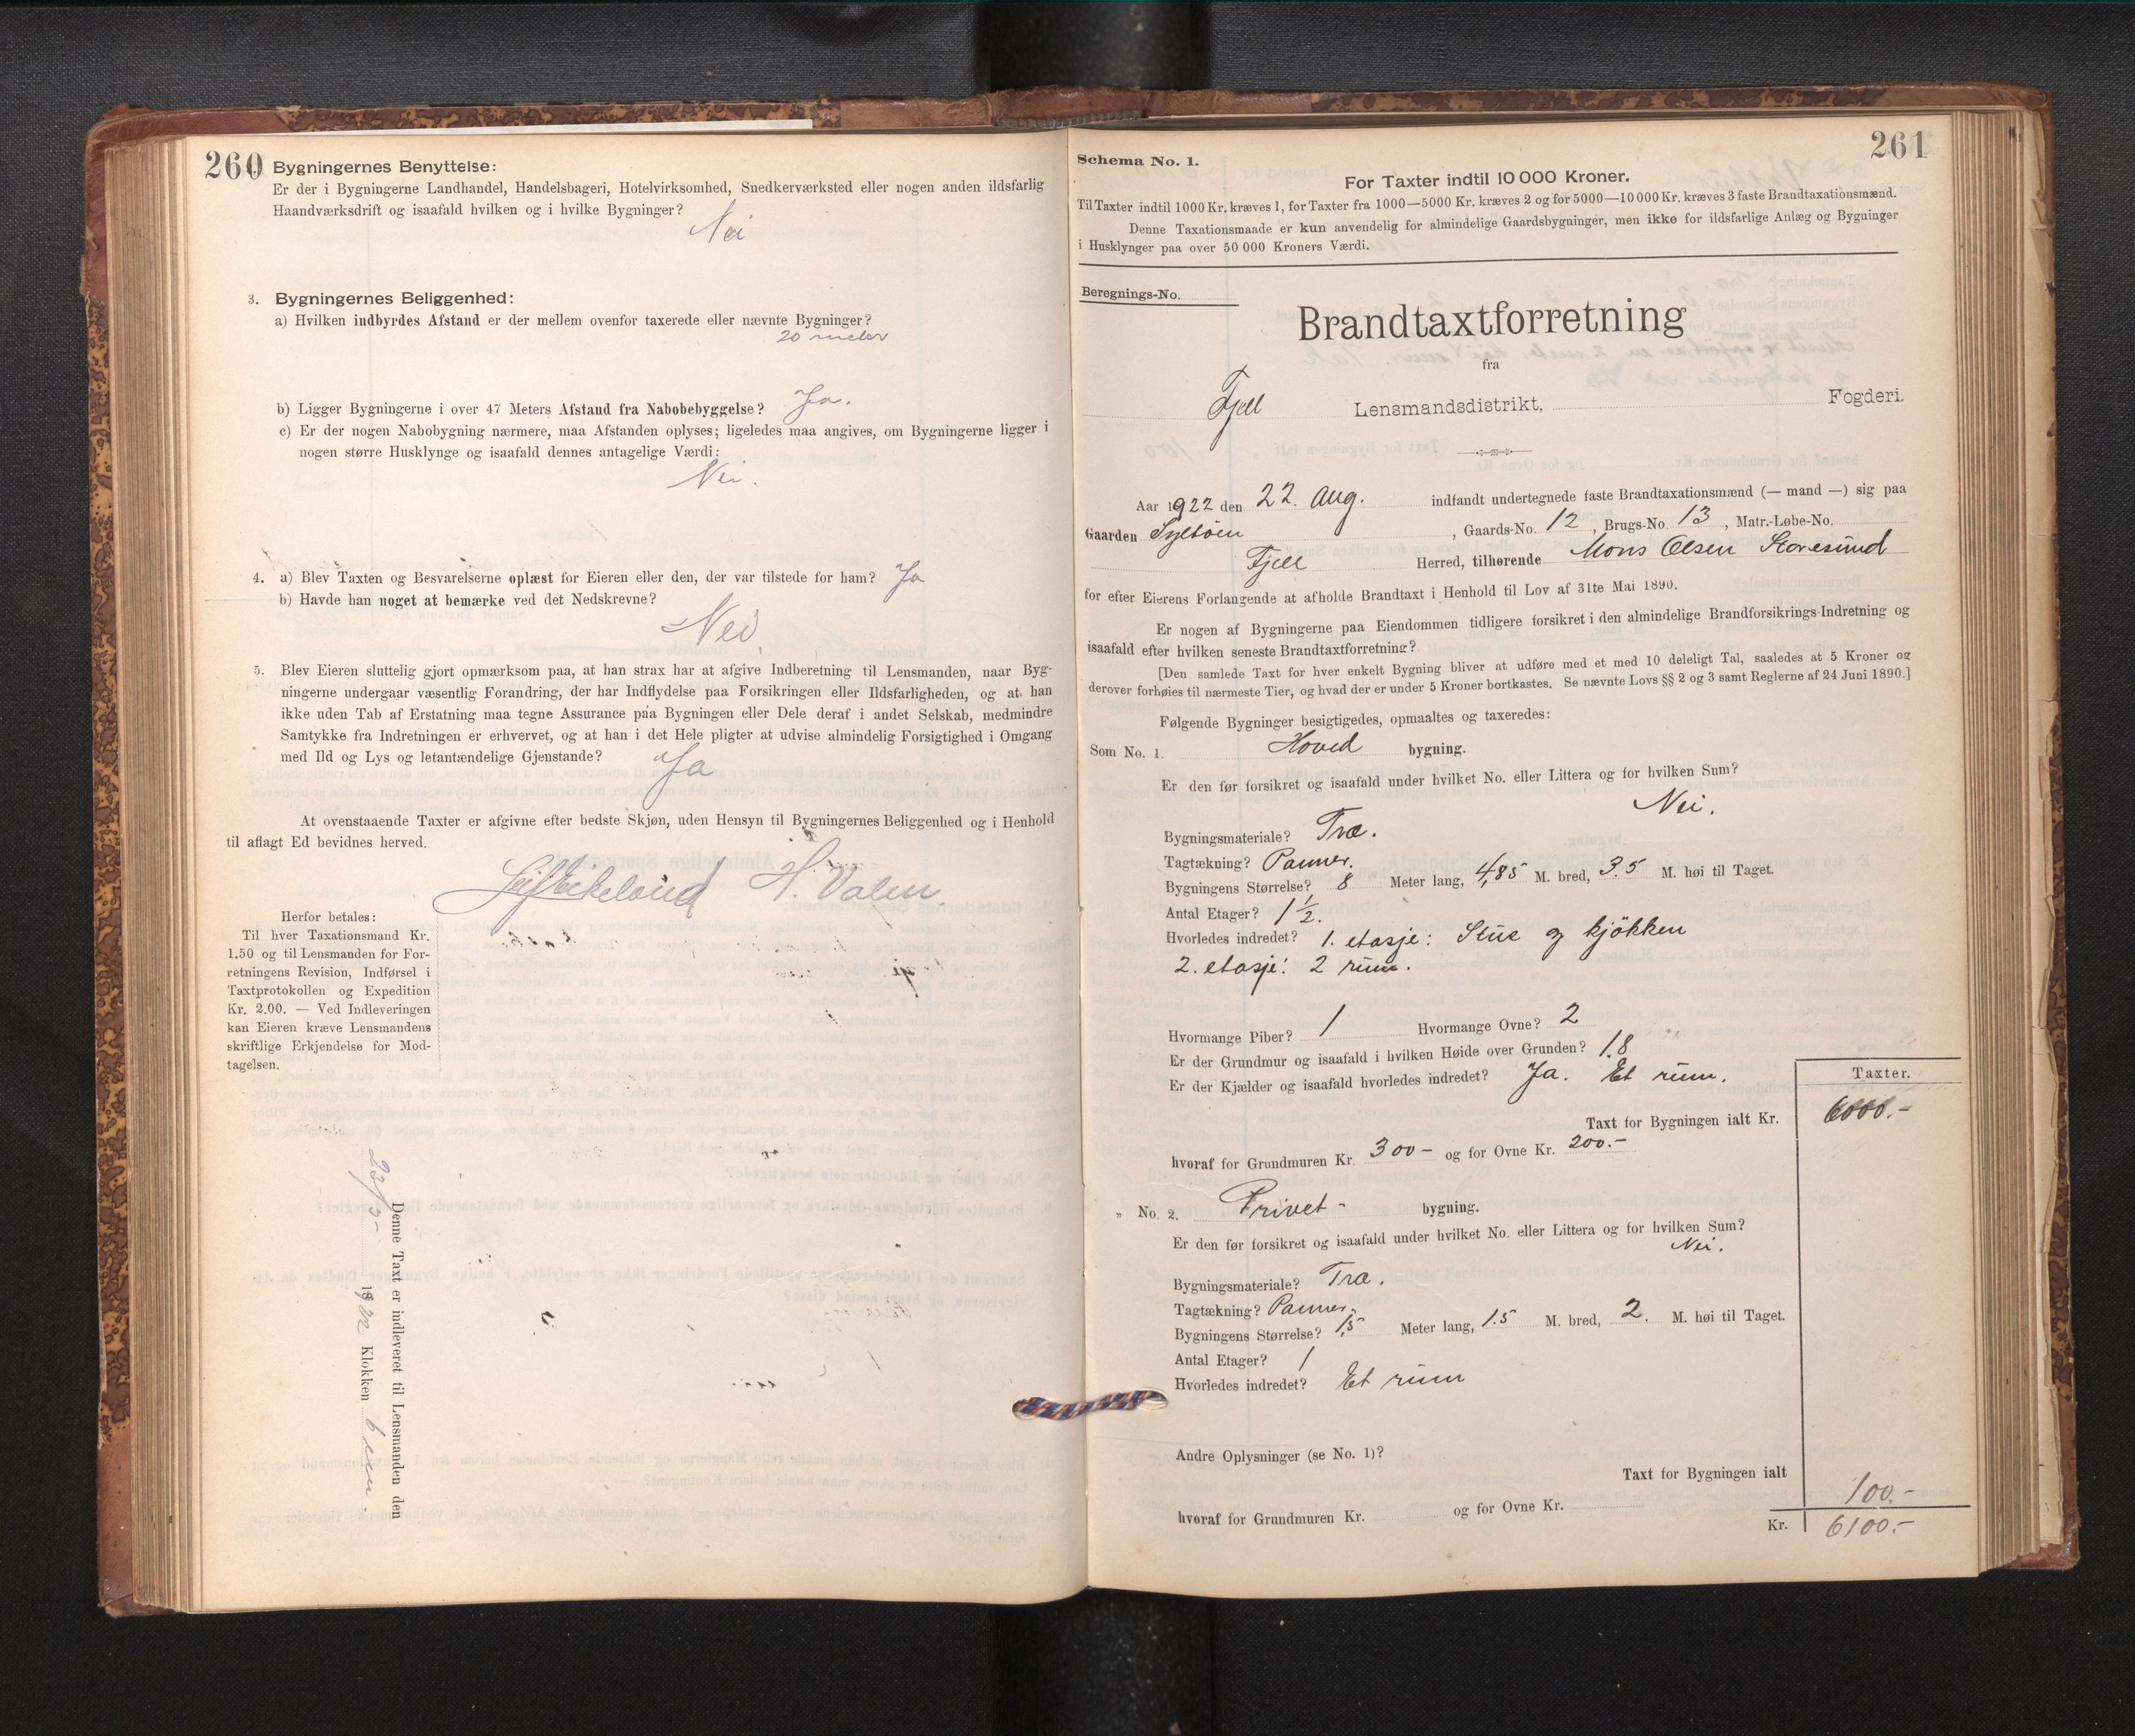 260
Bygningernes Benyttelse:
Er der i Bygningerne Landhandel, Handelsbageri, Hotelvirksomhed, Snedkerværksted eller nogen anden ildsfarlig
Haandværksdrift og isaafald hvilken og i hvilke Bygninger?
Nei
3. Bygningernes Beliggenhed:
a) Hvilken indbyrdes Afstand er der mellem ovenfor taxerede eller nævnte Bygninger?
20 meter
b) Ligger Bygningerne i over 47 Meters Afstand fra Nabobebyggelse? Ja.
c) Er der nogen Nabobygning nærmere, maa Afstanden oplyses; ligeledes maa angives, om Bygningerne ligger i
nogen større Husklynge og isaafald dennes antagelige Værdi:
Nei.
4. a) Blev Taxten og Besvarelserne oplæst for Eieren eller den, der var tilstede for ham? Ja
b) Havde han noget at bemærke ved det Nedskrevne?
Nei
5. Blev Eieren sluttelig gjort opmærksom paa, at han strax har at afgive Indberetning til Lensmanden, naar Byg-
ningerne undergaar væsentlig Forandring, der har Indflydelse paa Forsikringen eller Ildsfarligheden, og at han
ikke uden Tab af Erstatning maa tegne Assurance paa Bygningen eller Dele deraf i andet Selskab, medmindre
Samtykke fra Indretningen er erhvervet, og at han i det Hele pligter at udvise almindelig Forsigtighed i Omgang
med Ild og Lys og letantændelige Gjenstande? Ja
At ovenstaaende Taxter er afgivne efter bedste Skjøn, uden Hensyn til Bygningernes Beliggenhed og i Henhold
til aflagt Ed bevidnes herved.
H. Valen.
Herfor betales:
Til hver Taxationsmand Kr.
1.50 og til Lensmanden for For-
retningens Revision, Indførsel i
Taxtprotokollen og Expedition
Kr. 2.00. — Ved Indleveringen
kan Eieren kræve Lensmandens
skriftlige Erkjendelse for Mod-
tagelsen.
Denne Taxt er indleveret til Lensmanden den
1922 Klokken 6 em.
261
Schema No. 1.
For Taxter indtil 10 000 Kroner.
Til Taxter indtil 1000 Kr. kræves 1, for Taxter fra 1000—5000 Kr. kræves 2 og for 5000—10 000 Kr. kræves 3 faste Brandtaxationsmænd.
Denne Taxationsmaade er kun anvendelig for almindelige Gaardsbygninger, men ikke for ildsfarlige Anlæg og Bygninger
i Husklynger paa over 50 000 Kroners Værdi.
Beregnings-No.
Brandtaxtforretning
fra
Fjell Lensmandsdistrikt, Fogderi.
Aar 1922 den 22. Aug. indfandt undertegnede faste Brandtaxationsmænd (— mand —) sig paa
Gaarden Syltøen, Gaards-No. 12, Brugs-No. 13, Matr.-Løbe-No.
Fjell Herred, tilhørende Mons Olsen Storesund
for efter Eierens Forlangende at afholde Brandtaxt i Henhold til Lov af 31te Mai 1890.
Er nogen af Bygningerne paa Eiendommen tidligere forsikret i den almindelige Brandforsikrings-Indretning og
isaafald efter hvilken seneste Brandtaxtforretning?
[Den samlede Taxt for hver enkelt Bygning bliver at udføre med et med 10 deleligt Tal, saaledes at 5 Kroner og
derover forhøies til nærmeste Tier, og hvad der er under 5 Kroner bortkastes. Se nævnte Lovs §§ 2 og 3 samt Reglerne af 24 Juni 1890.]
Følgende Bygninger besigtigedes, opmaaltes og taxeredes:
Som No. 1. Hoved bygning.
Er den før forsikret og isaafald under hvilket No. eller Littera og for hvilken Sum?
Nei.
Bygningsmateriale? Træ.
Tagtækning? Panner.
Bygningens Størrelse? 8 Meter lang, 4,85 M. bred, 3.5 M. høi til Taget.
Antal Etager? 1 1/2.
Hvorledes indredet? 1. etasje: Stue og kjøkken
2. etasje: 2 rum.
Hvormange Piber? 1 Hvormange Ovne? 2
Er der Grundmur og isaafald i hvilken Høide over Grunden? 1.8
Er der Kjælder og isaafald hvorledes indredet? Ja. Et rum.
Taxter.
Taxt for Bygningen ialt Kr. 6000.-
hvoraf for Grundmuren Kr. 300- og for Ovne Kr. 200.-
„ No. 2. Privet- bygning.
Er den før forsikret og isaafald under hvilket No. eller Littera og for hvilken Sum?
Nei.
Bygningsmateriale? Træ.
Tagtækning? Panner.
Bygningens Størrelse? 1,5 Meter lang, 1.5 M. bred, 2. M. høi til Taget.
Antal Etager? 1
Hvorledes indredet? Et rum
Andre Oplysninger (se No. 1)?
Taxt for Bygningen ialt 100.-
hvoraf for Grundmuren Kr. og for Ovne Kr.
Kr. 6100.-